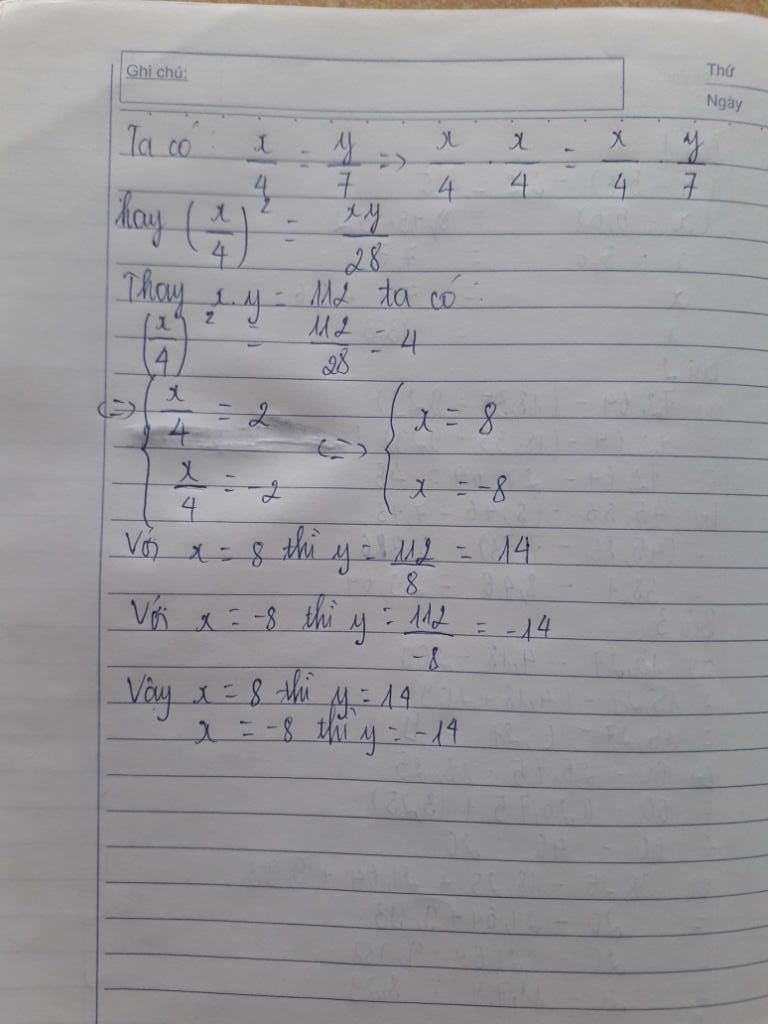 Ghi chú:
Thứ
Ngày
Ta có: x/4 = y/7 => x/4 . x/4 = x/4 . y/7
hay (x/4)² = xy/28
Thay x.y = 112 ta có:
(x/4)² = 112/28 = 4
<=> { x/4 = 2 <=> { x = 8
x/4 = -2 x = -8
Với x = 8 thì y = 112/8 = 14
Với x = -8 thì y = 112/-8 = -14
Vậy x = 8 thì y = 14
x = -8 thì y = -14